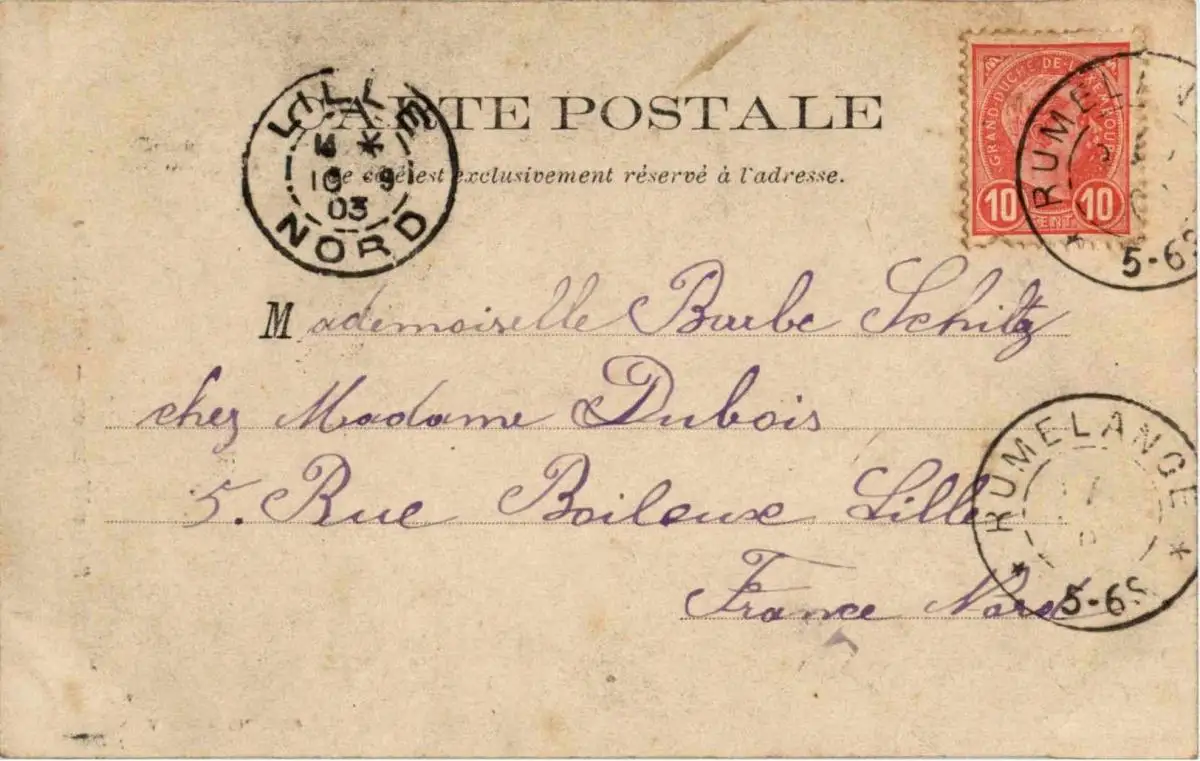 CARTE POSTALE
Ce côté est exclusivement réservé à l'adresse.
LILLE
*
10 - 9
03
NORD
GRAND-DUCHÉ-DE-LUXEMBOURG
10 CENT 10
RUMEL
5-6S
Mademoiselle Barbe Schiltz
chez Madame Dubois
5. Rue Boileux Lille
France Nord
RUMELANGE
5-6S